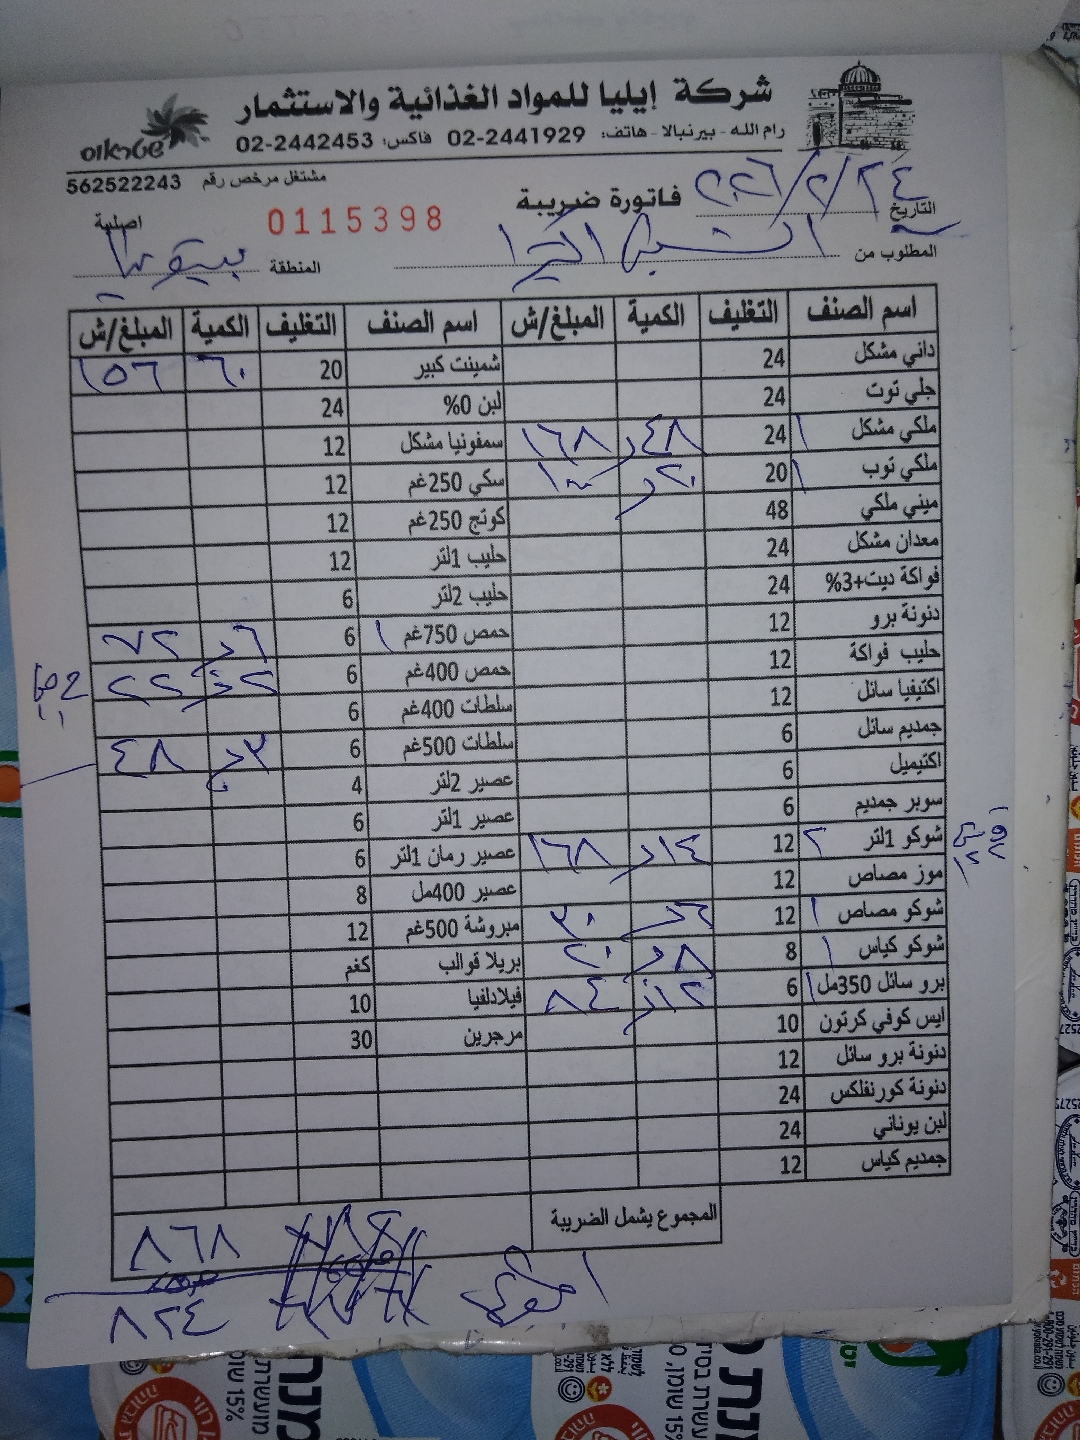 شركة إيليا للمواد الغذائية والاستثمار
رام الله - بيرنبالا - هاتف: 02-2441929 فاكس: 02-2442453
مشتغل مرخص رقم 562522243
التاريخ ٢٠٢٦/٢/٢٤ فاتورة ضريبة
0115398 اصلية
المطلوب من المنطقة
اسم الصنف التغليف الكمية المبلغ/ش اسم الصنف التغليف الكمية المبلغ/ش
داني مشكل 24 شمينت كبير 20 ٦٠ ١٥٦
جلي توت 24 لبن 0% 24
ملكي مشكل ١ 24 ٤٨ ١٦٨ سمفونيا مشكل 12
ملكي توب ١ 20 ٢٠ ١٠٠ سكي 250غم 12
ميني ملكي 48 كوتج 250غم 12
معدان مشكل 24 حليب 1لتر 12
فواكة ديت+3% 24 حليب 2لتر 6
دنونة برو 12 حمص 750غم ١ 6 ٦ ٧٢
حليب فواكة 12 حمص 400غم 6 ٢ ٢٢
اكتيفيا سائل 12 سلطات 400غم 6
جمديم سائل 6 سلطات 500غم 6 ٣ ٤٨
اكتيميل 6 عصير 2لتر 4
سوبر جمديم 6 عصير 1لتر 6
شوكو 1لتر ٢ 12 ١٤ ١٦٨ عصير رمان 1لتر 6
موز مصاص 12 عصير 400مل 8
شوكو مصاص ١ 12 ٣٠ مبروشة 500غم 12
شوكو كياس ١ 8 ٨ ٢٠ بريلا قوالب كغم
برو سائل 350مل ١ 6 ١٢ ٨٤ فيلادلفيا 10
ايس كوفي كرتون 10 مرجرين 30
دنونة برو سائل 12
دنونة كورنفلكس 24
لبن يوناني 24
جمديم كياس 12
المجموع يشمل الضريبة ٨٦٨
٨٢٤